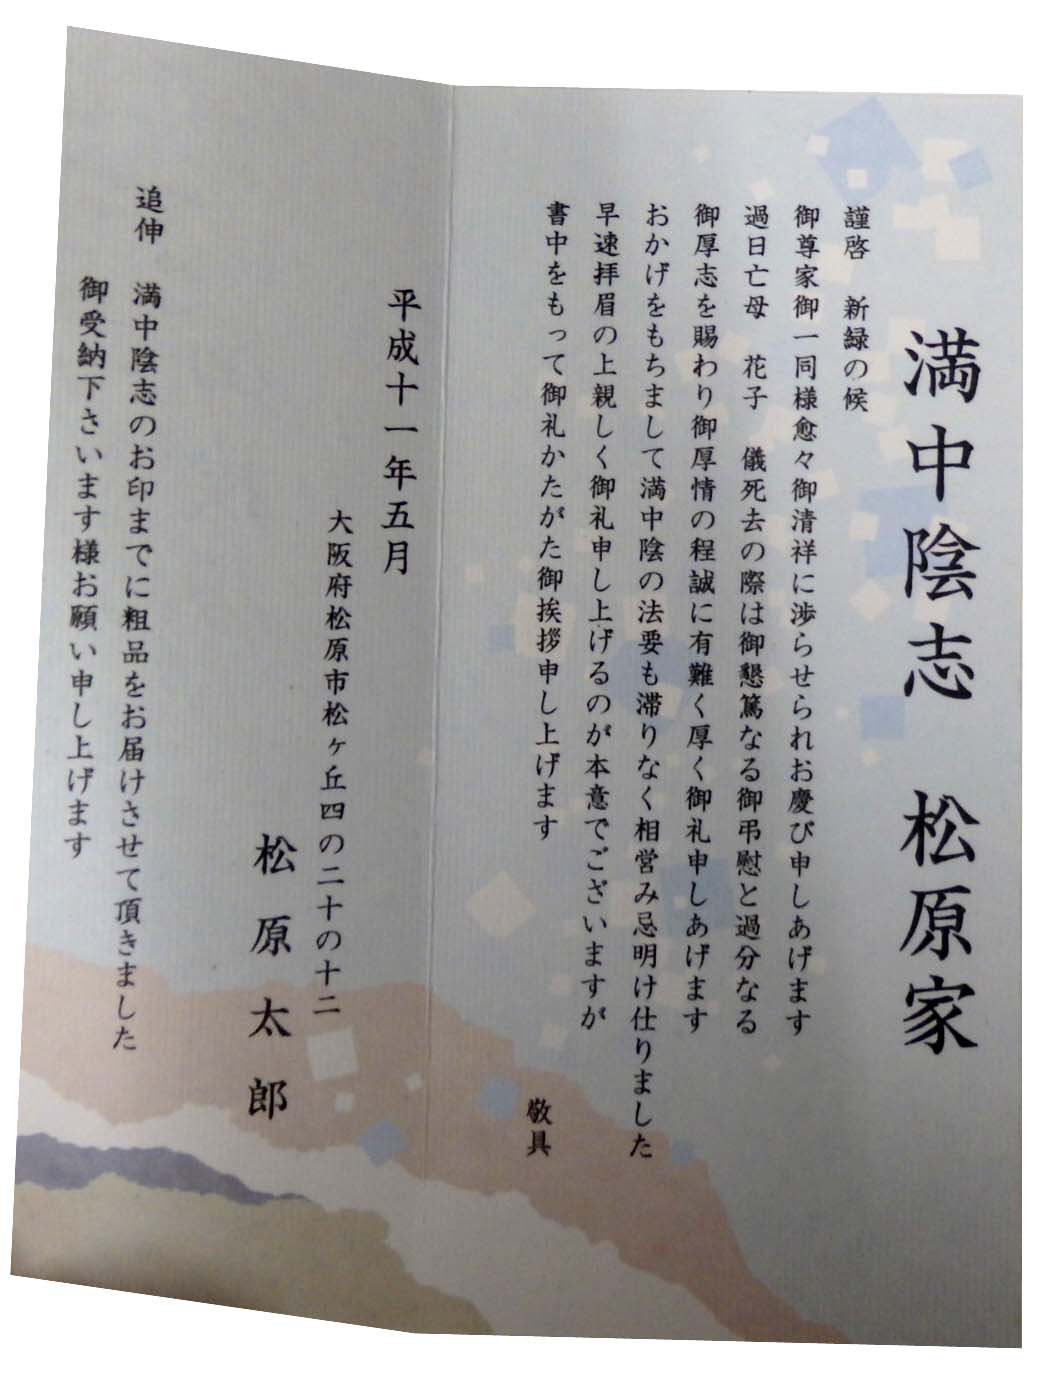 満中陰志　松原家
謹啓　新緑の候
御尊家御一同様愈々御清祥に渉らせられお慶び申しあげます
過日亡母　花子　儀死去の際は御懇篤なる御弔慰と過分なる
御厚志を賜わり御厚情の程誠に有難く厚く御礼申しあげます
おかげをもちまして満中陰の法要も滞りなく相営み忌明け仕りました
早速拝眉の上親しく御礼申し上げるのが本意でございますが
書中をもって御礼かたがた御挨拶申し上げます
敬具
平成十一年五月
大阪府松原市松ヶ丘四の二十の十二
松原太郎
追伸　満中陰志のお印までに粗品をお届けさせて頂きました
御受納下さいます様お願い申し上げます